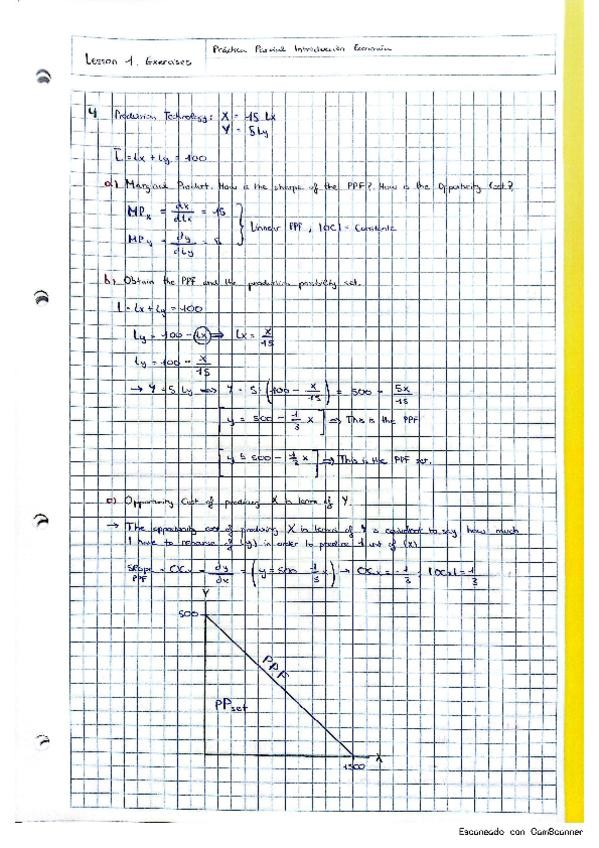 Práctica Parcial Introducción Economía
Lesson 1. Exercises
4 Production Technology: X = 15 Lx
Y = 5Ly
L̄ = Lx + Ly = 100
a) Marginal Product. How is the shape of the PPF? How is the Opportunity Cost?
MPx = dx/dLx = 15
Linear PPF, |OC| = Constante
MPy = dy/dLy = 5
b) Obtain the PPF and the production possibility set.
L = Lx + Ly = 100
Ly = 100 - Lx ⇒ Lx = X/15
Ly = 100 - X/15
→ Y = 5 Ly ⇒ Y = 5·(100 - X/15) = 500 - 5X/15
[y = 500 - 1/3 x] ⇒ This is the PPF
[y ≤ 500 - 1/3 x] ⇒ This is the PPF set.
c) Opportunity Cost of producing X in terms of Y.
→ The opportunity cost of producing X in terms of Y is equivalent to say how much
I have to renounce of (y) in order to produce 1 unit of (x)
Slope PPF = OCx = dy/dx = (y = 500 - 1/3 x) → OCx = -1/3 ; |OCx| = 1/3
Y
500
PPF
PPset
1500
X
Escaneado con CamScanner